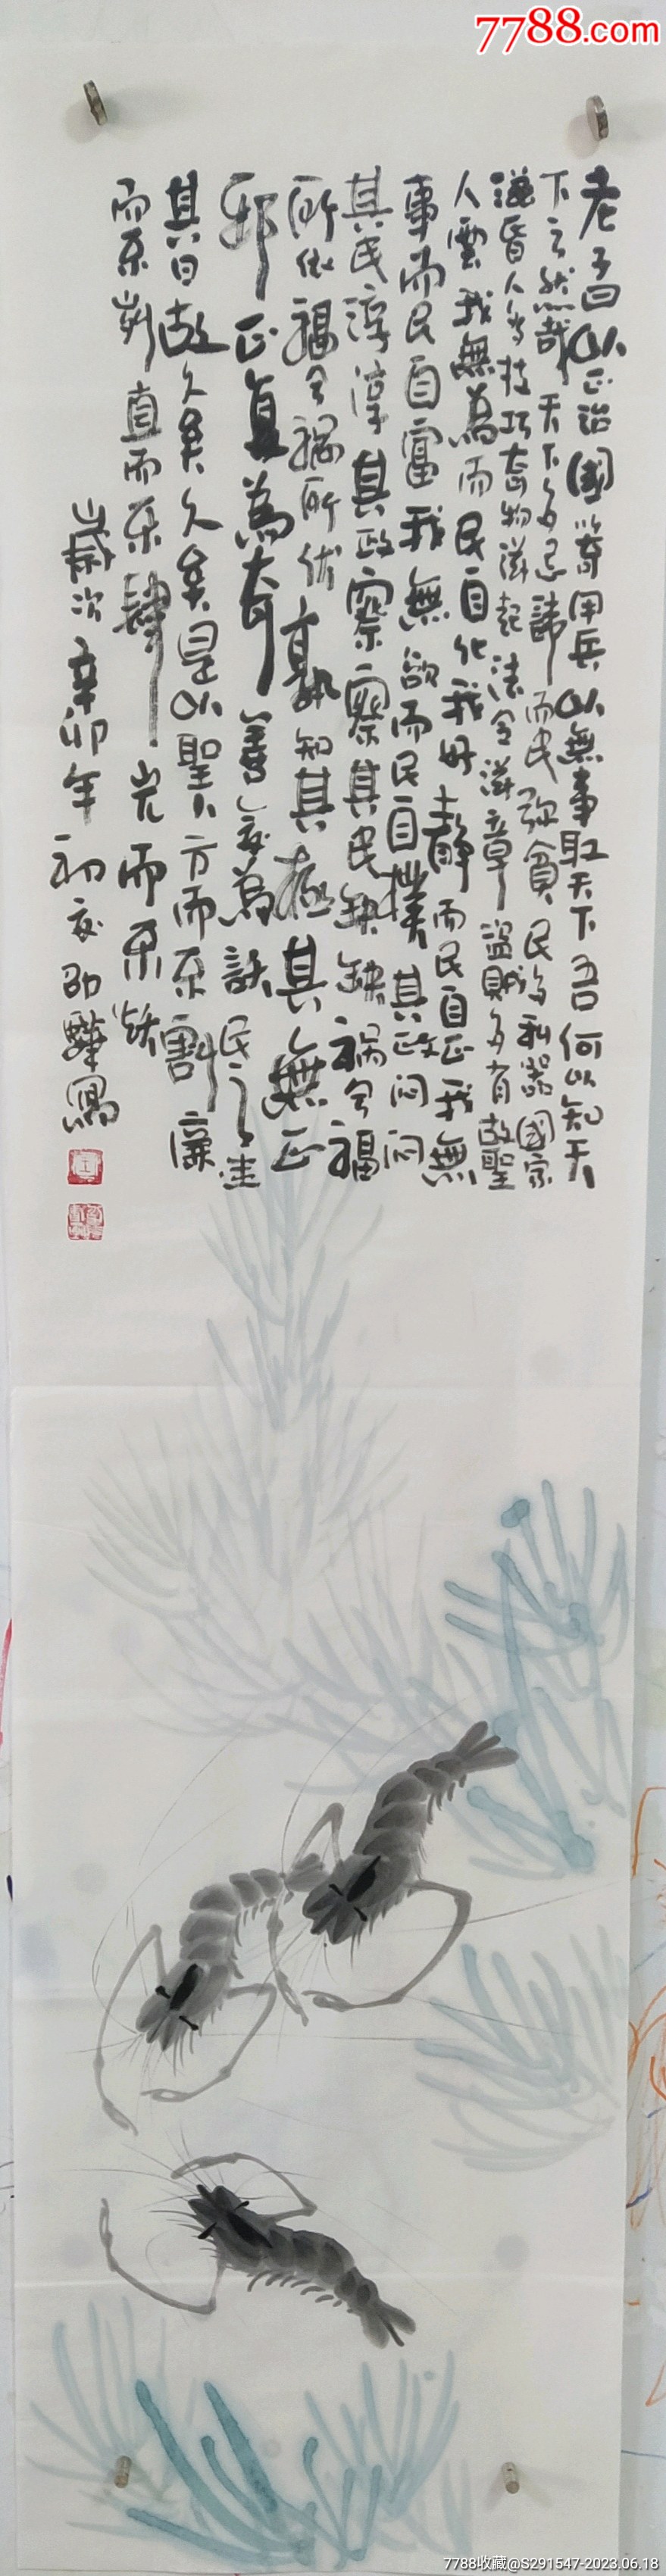 7788.com
老子曰以正治國 用兵以無事取天下吾何以知天
下之然哉天下多忌諱而民弥貧民多利器國家
滋昏人多技巧奇物滋起法令滋章盜賊多有故聖
人雲我無為而民自化我好靜而民自正我無
事而民自富我無欲而民自樸其政闷闷
其民淳淳其政察察其民缺缺祸兮福
所依福兮禍所伏孰知其極其無正
邪正复為奇善复為訞民之迷
其日故久矣久矣是以聖人方而不割廉
而不劌直而不肆光而不燿
歲次辛卯年初夏邵驊寫
7788收藏@S291547-2023.06.18